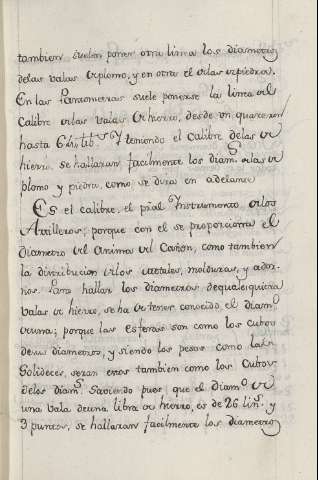 tambien suelen poner otra linea los diametros
delas valas de plomo, y en otra el de las de piedra.
En las Pantometras suele ponerse la linea del
Calibre de las valas de hierro, desde un quarteron
hasta 64 lib.s Y teniendo el calibre delas de
hierro, se hallaran facilmente los diam.s de las de
plomo y piedra, como se dira en adelante
Es el calibre, el pral Instrumento de los
Artilleros; porque con el se proporciona el
Diametro del Anima del Cañon, como tambien
la distribucion de los metales, molduras, y ador-
nos. Para hallar los diametros dequalequiera
valas de hierro, se ha de tener conocido el diam.o
de una; porque las esferas son como los cubos
de sus diametros, y siendo los pesos como las
Solideces, seran estos tambien como los Cubos
delos diam.s Saviendo pues que el diam.o de
una vala de una libra de hierro, es de 26 lin.s y
3 puntos, se hallaran facilmente los diametros